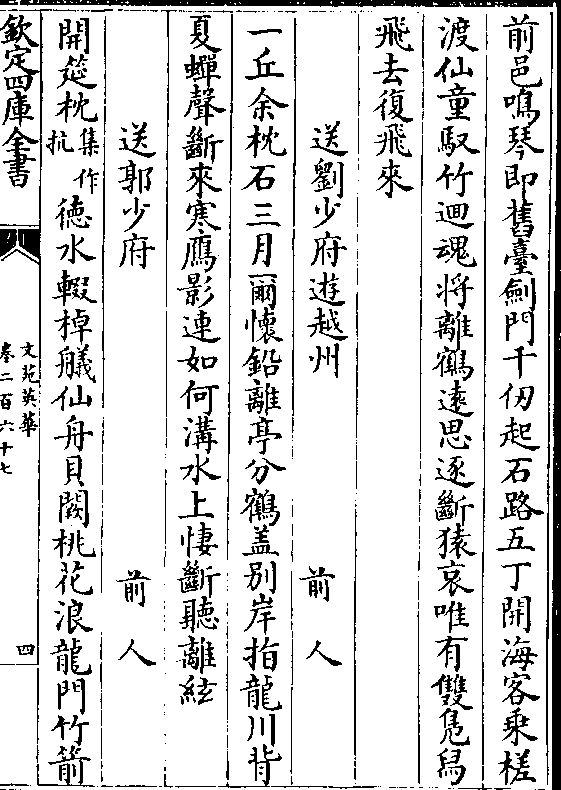 前邑鳴琴即舊臺劍門千仞起石路五丁開海客乘槎
渡仙童馭竹迴魂将離鶴遠思逐斷猿哀唯有雙鳬舄
飛去復飛來
送劉少府遊越州 前人
一丘余枕石三月爾懐鉛離亭分鶴盖别岸指龍川背
夏蟬聲斷來寒鴈影連如何溝水上悽斷聽離絃
送郭少府 前人
開筵枕集作抗徳水輟棹艤仙舟貝闕桃花浪龍門竹箭
欽定四庫全書
文苑英華
卷二百六十七
四